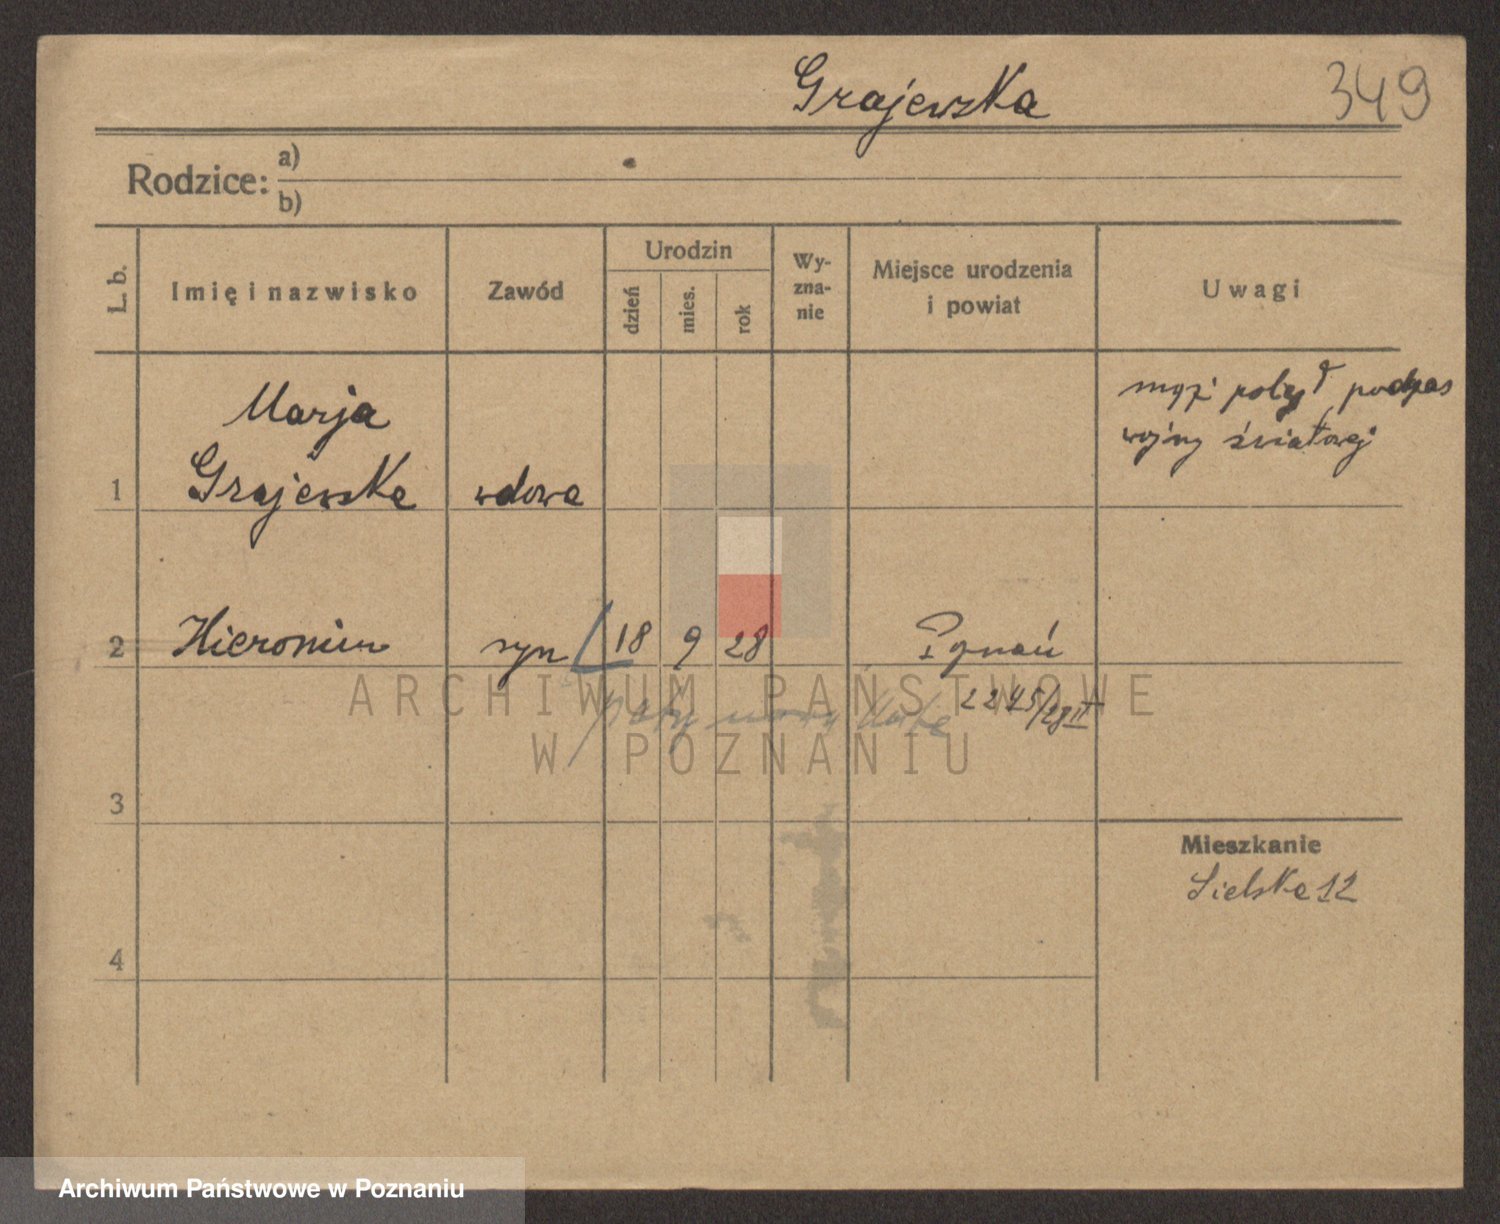 Grajewska 349
Rodzice: a)
b)
L. b. Imię i nazwisko Zawód Urodzin dzień mies. rok Wy-zna-nie Miejsce urodzenia i powiat Uwagi
Marja
mąż poległ podczas
wojny światowej
1 Grajewska wdowa
2 Hieronim syn 18 9 28 Poznań
2245/28 II
ARCHIWUM PAŃSTWOWE
W POZNANIU
3
Mieszkanie
Sielska 12
4
Archiwum Państwowe w Poznaniu